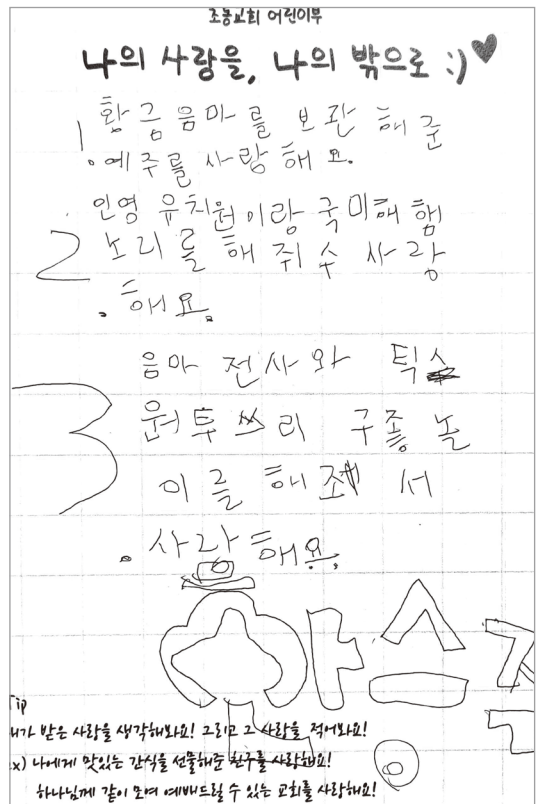 조봉교회 어린이부
나의 사랑을, 나의 밖으로 :)♥
1. 황금음마를 보관 해 준
예주를 사랑 해 요.
2. 인영 유치원이랑 국미해 햄
노리를 해 쥐수 사랑
해요.
3 음마 전사와 틱
원투쓰리 구좋놀
이를 해 서
사랑해요.
Tip
내가 받은 사랑을 생각해봐요! 그리고 그 사랑을 적어봐요!
ex) 나에게 맛있는 간식을 선물해준 친구를 사랑해요!
하나님께 같이 모여 예배드릴 수 있는 교회를 사랑해요!